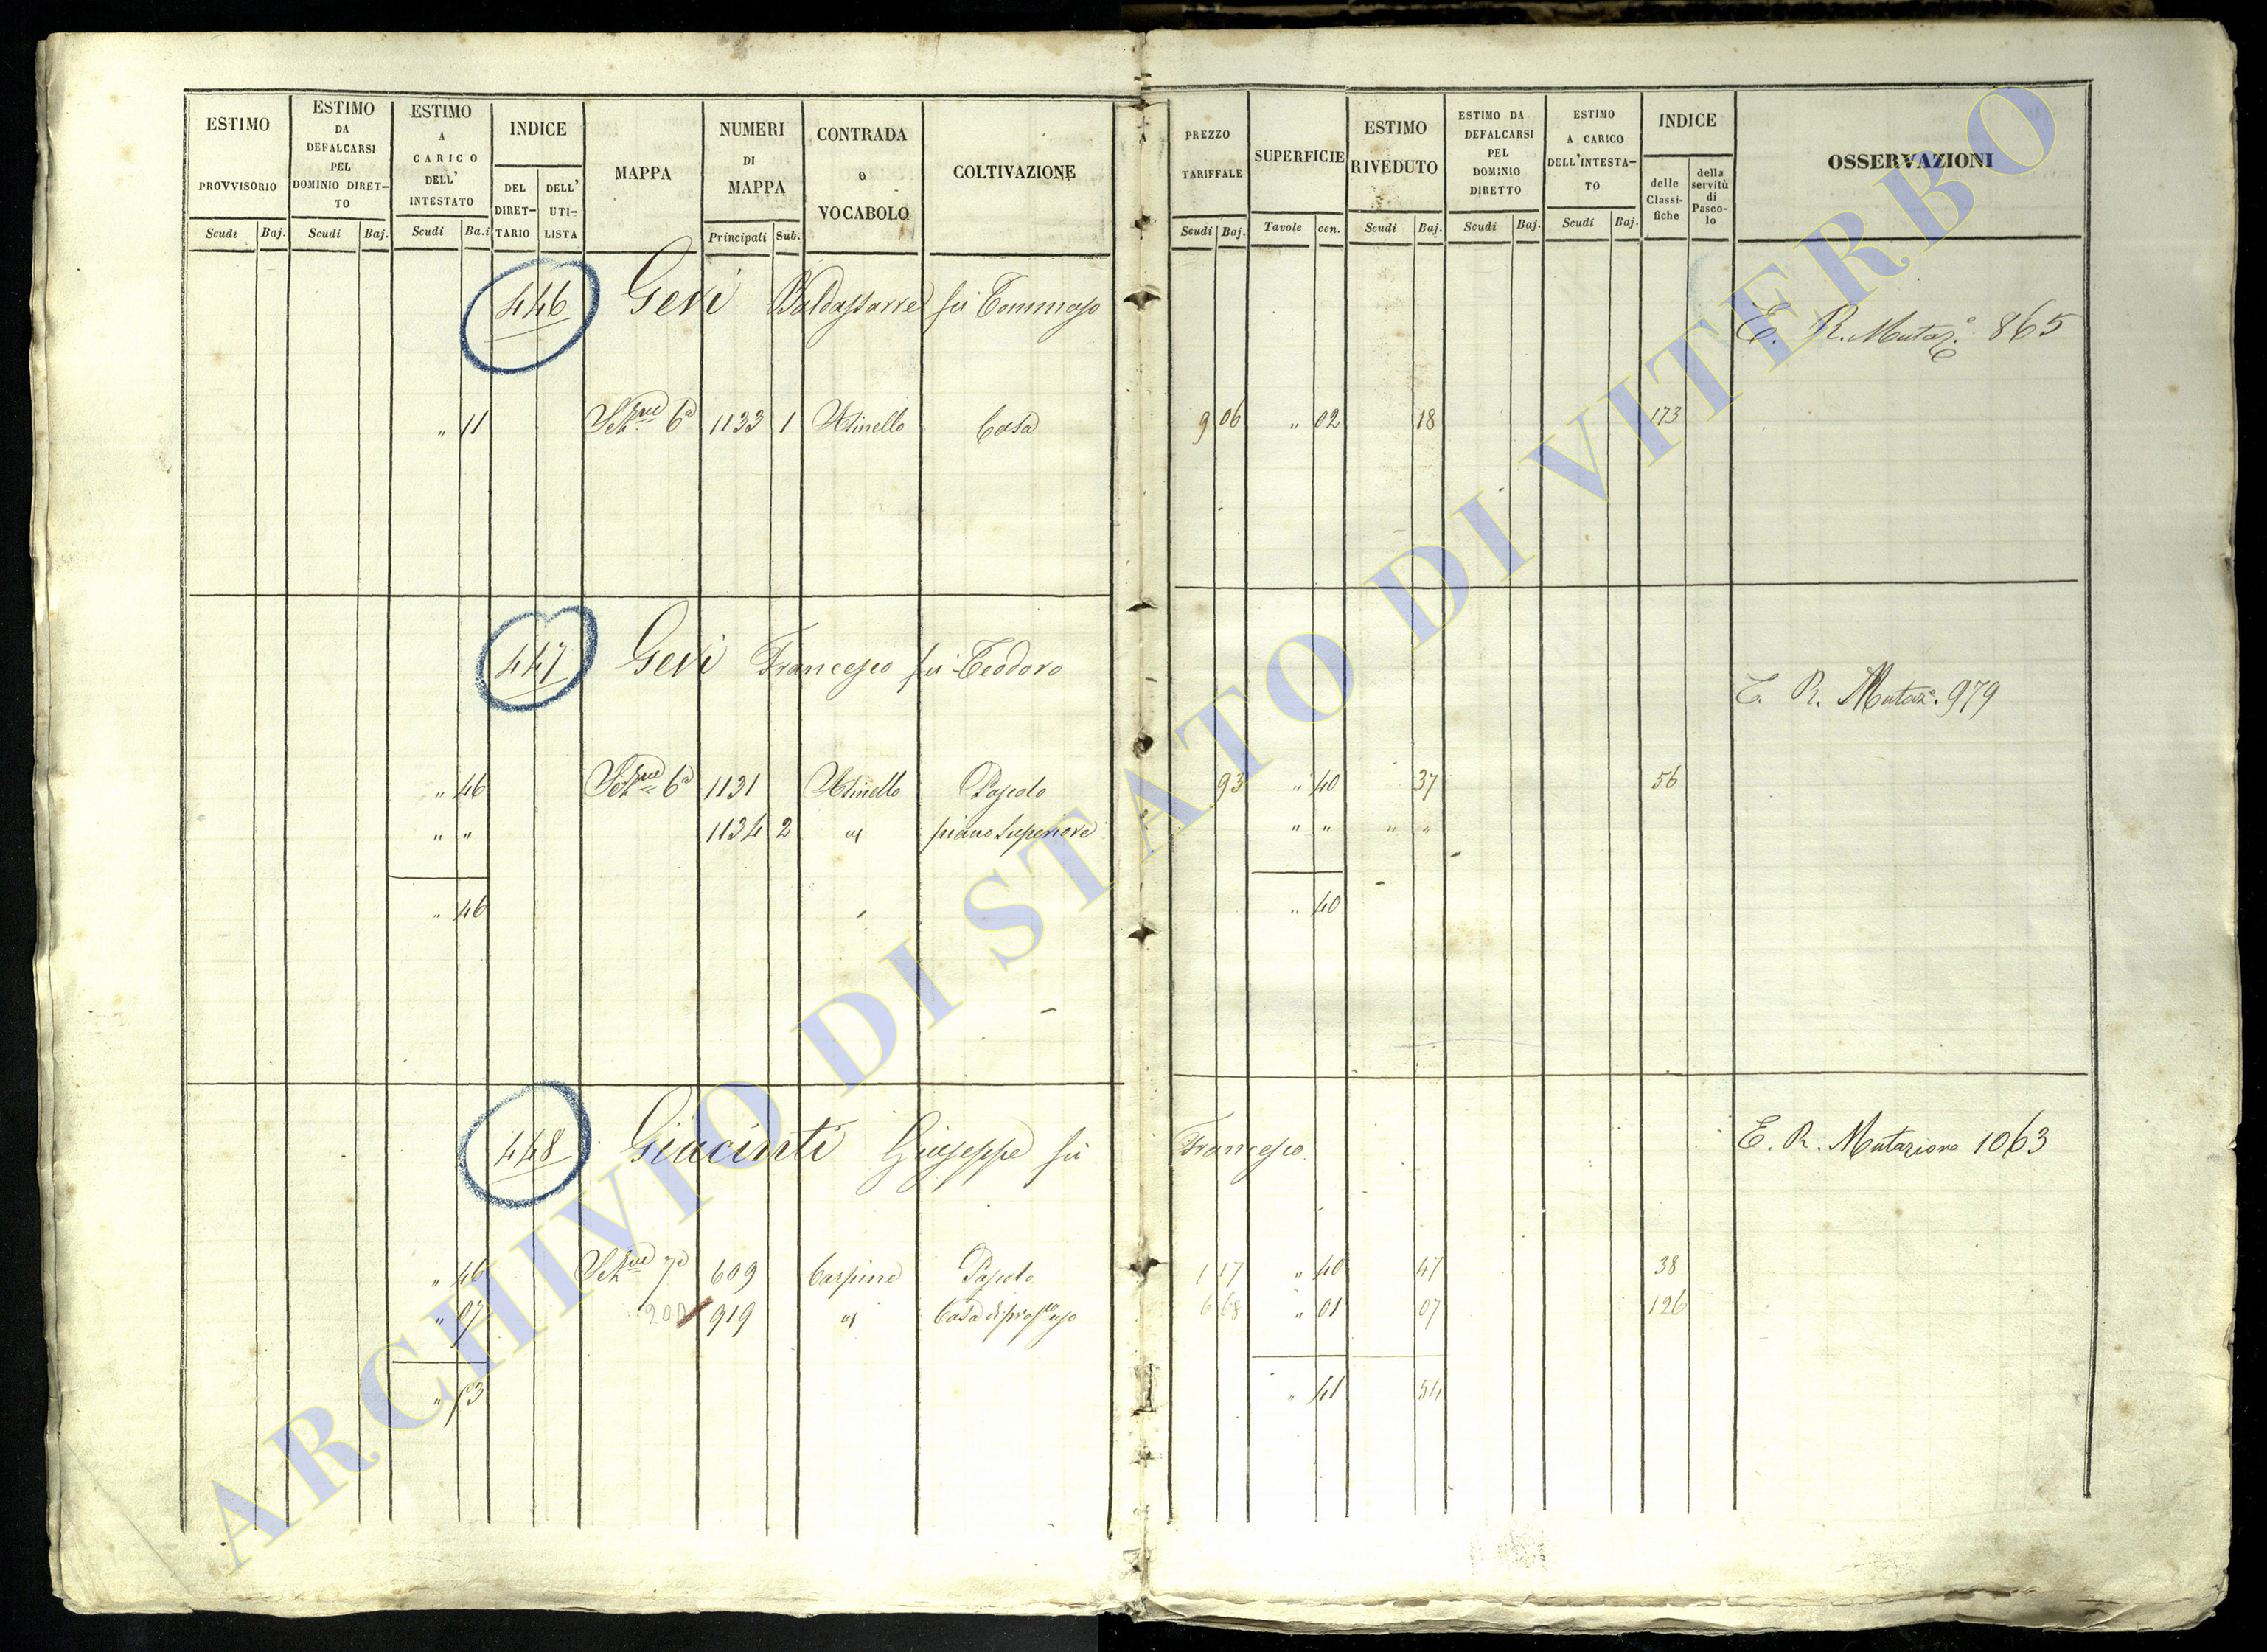 ESTIMO PROVVISORIO
Scudi Baj.
ESTIMO DA DEFALCARSI PEL DOMINIO DIRET-TO
Scudi Baj.
ESTIMO A CARICO DELL' INTESTATO
Scudi Ba.i
INDICE
DEL DIRET-TARIO
DELL' UTI-LISTA
MAPPA
NUMERI DI MAPPA
Principali Sub.
CONTRADA o VOCABOLO
COLTIVAZIONE
PREZZO TARIFFALE
Scudi Baj.
SUPERFICIE
Tavole cen.
ESTIMO RIVEDUTO
Scudi Baj.
ESTIMO DA DEFALCARSI PEL DOMINIO DIRETTO
Scudi Baj.
ESTIMO A CARICO DELL'INTESTA-TO
Scudi Baj.
INDICE
delle Classi-fiche
della servitù di Pasco-lo
OSSERVAZIONI
446 Gevi Baldassarre fu Tommaso
E. R. Mutaz.e 865
" 11 6a 1133 1 Casa 9 06 " 02 18 173
447 Gevi Francesco fu Teodoro
E. R. Mutaz.e 979
" 46 6a 1131 Pascolo 93 " 40 37 56
" " 1134 2 piano superiore " " " "
" 46 " 40
448 Giacinti Giuseppe fu Francesco
E. R. Mutazione 1063
" 46 7a 609 Carpine Pascolo 1 17 " 40 47 38
" 07 919 Casa di 6 68 " 01 07 126
" 53 " 41 54
ARCHIVIO DI STATO DI VITERBO